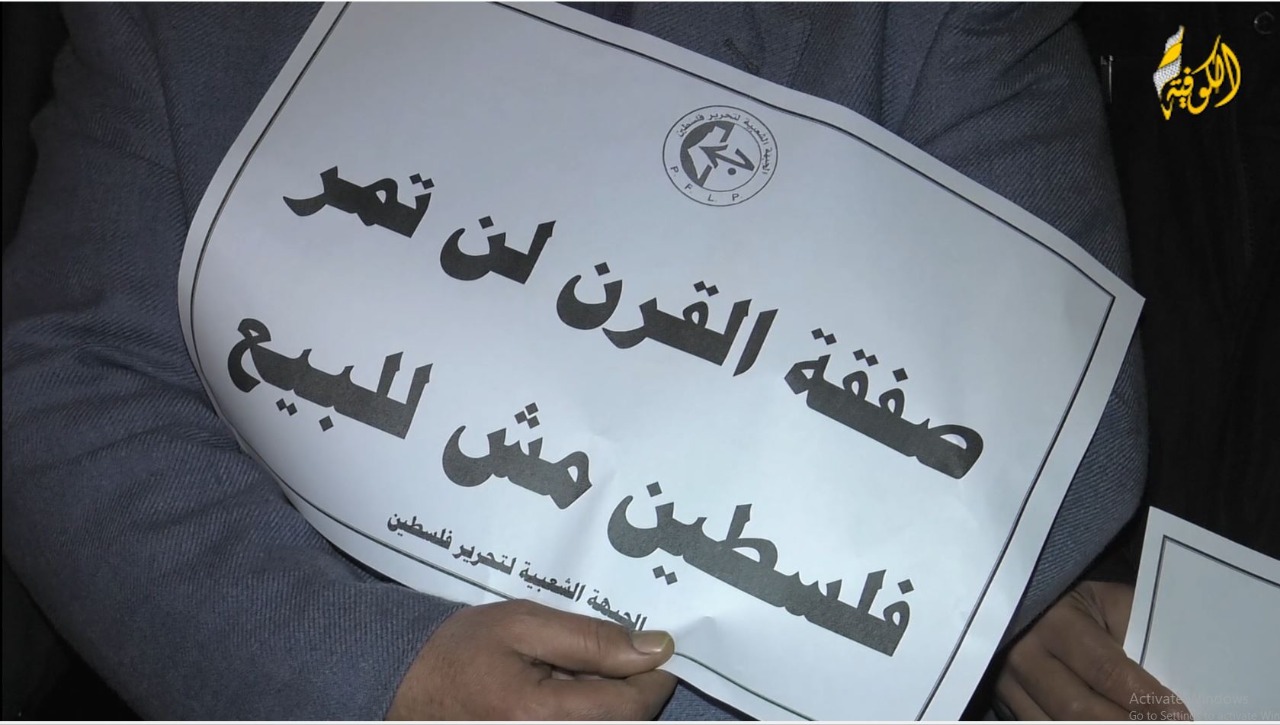 الكوفية
الجبهة الشعبية لتحرير فلسطين
P. F. L. P
صفقة القرن لن تمر
فلسطين مش للبيع
الجبهة الشعبية لتحرير فلسطين
Activate Windows
Go to Settings